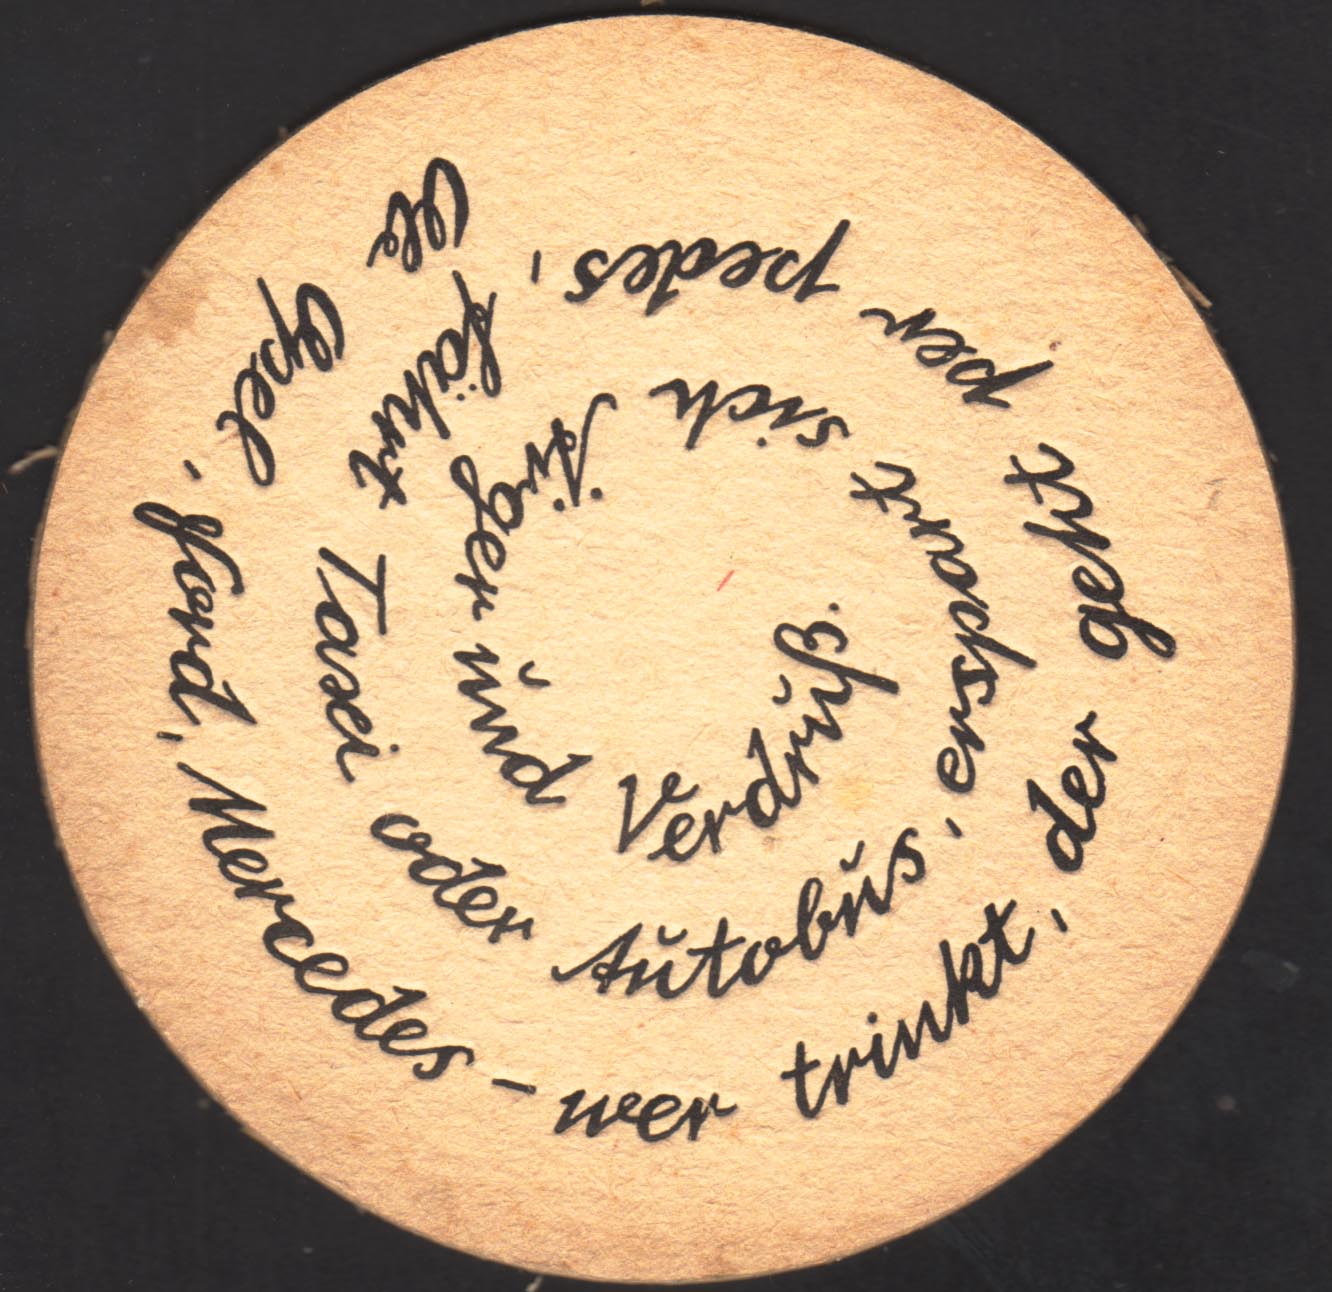 Ob Opel, Ford, Mercedes – wer trinkt, der geht per pedes, fährt Taxi oder Autobus, erspart sich Ärger und Verdruß.